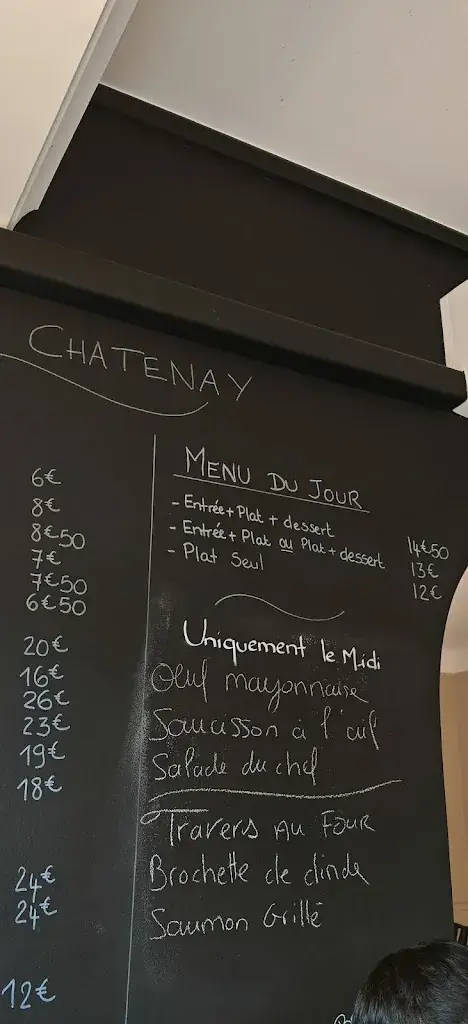 CHATENAY
6€
8€
8€50
7€
7€50
6€50
20€
16€
26€
23€
19€
18€
24€
24€
12€
MENU DU JOUR
- Entrée + Plat + dessert 14€50
- Entrée + Plat ou Plat + dessert 13€
- Plat Seul 12€
Uniquement le Midi
Oeuf mayonnaise
Saucisson à l'ail
Salade du chef
Travers AU FOUR
Brochette de dinde
Saumon Grillé